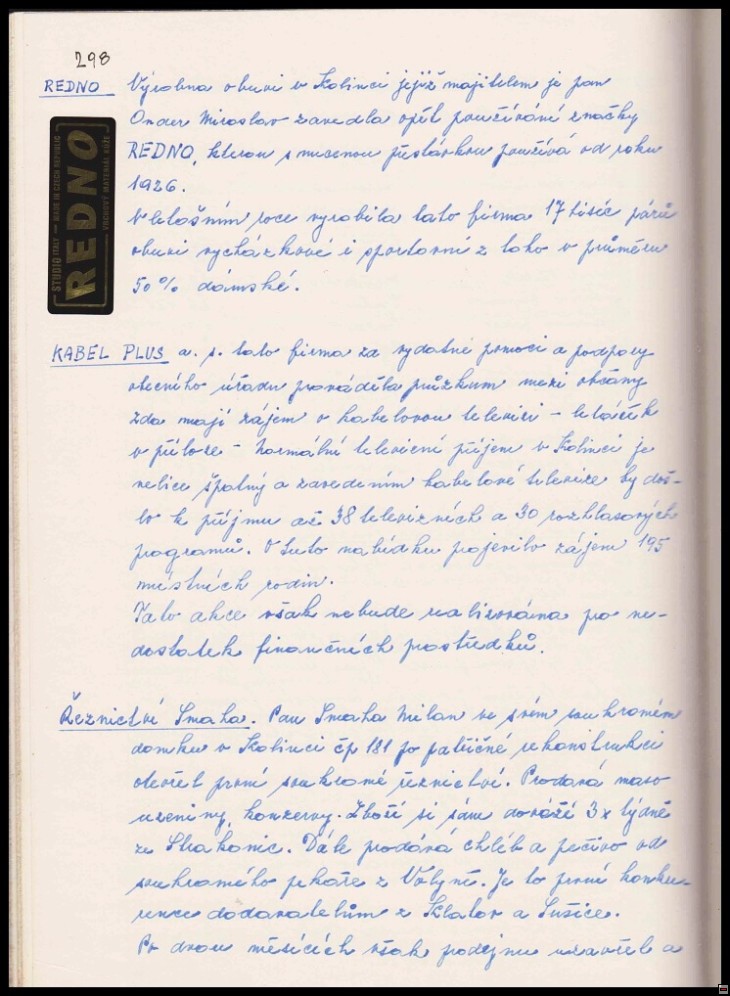 298
REDNO Výrobna obuvi v Kolinci jejíž majitelem je pan
Onder Miroslav zavedla opět používání značky
REDNO, kterou s nucenou přestávkou používá od roku
1926.
V letošním roce vyrobila tato firma 17 tisíc párů
obuvi vycházkové i sportovní z toho v průměru
50% dámské.
STUDIO ITALY — MADE IN CZECH REPUBLIC
REDNO
VRCHOVÝ MATERIÁL KŮŽE
KABEL PLUS a. s. tato firma za vydatné pomoci a podpory
obecního úřadu prováděla průzkum mezi občany
zda mají zájem o kabelovou televizi – letáček
v příloze – normální televizní příjem v Kolinci je
velice špatný a zavedením kabelové televize by doš-
lo k příjmu až 38 televizních a 30 rozhlasových
programů. O tuto nabídku projevilo zájem 195
místních rodin.
Tato akce však nebude realizována pro ne-
dostatek finančních prostředků.
Řeznictví Smaha. Pan Smaha Milan ve svém soukromém
domku v Kolinci čp 181 po patřičné rekonstrukci
otevřel první soukromé řeznictví. Prodává maso
uzeniny, konzervy. Zboží si sám dováží 3x týdně
ze Strakonic. Dále prodává chléb a pečivo od
soukromého pekaře z Volyně. Je to první konku-
rence dodavatelům z Klatov a Sušice.
Po dvou měsících však prodejnu uzavřel a